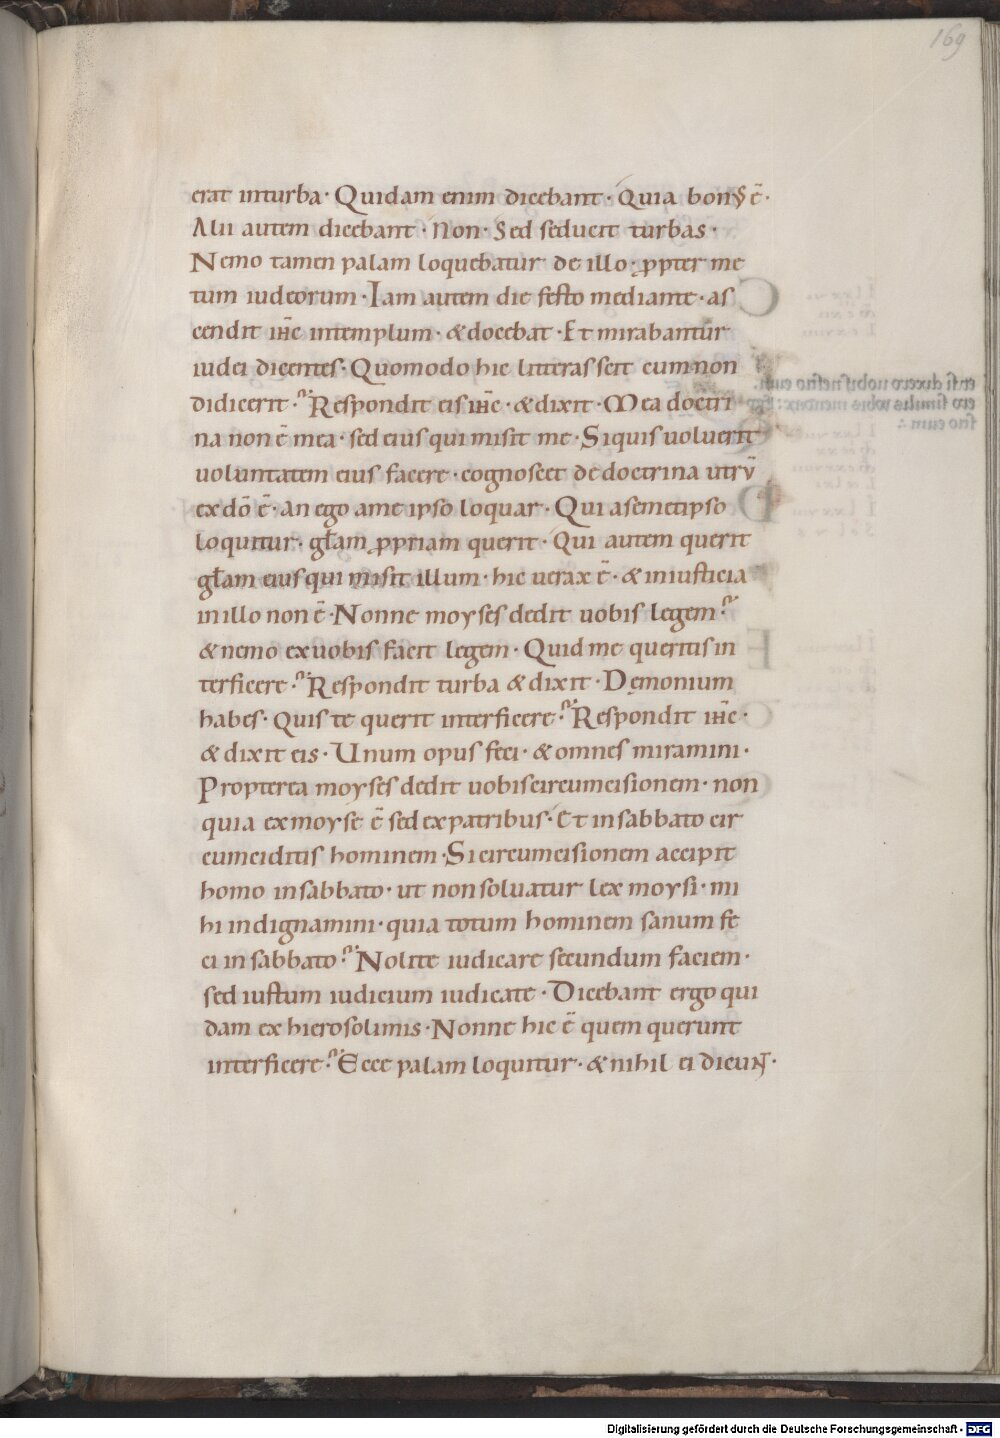 169
erat inturba· Quidam enim dicebant· Quia bonus ē·
Alii autem dicebant· Non· Sed seducit turbas·
Nemo tamen palam loquebatur de illo· ꝓpter me
tum iudeorum· Iam autem die festo mediante· as
cendit ihc intemplum· & docebat· Et mirabantur
iudei dicentes· Quomodo hic litteras scit cum non
didicerit? Respondit eis ihc· & dixit· Mea doctri
na non ē mea· sed eius qui misit me· Siquis uoluerit
uoluntatem eius facere· cognoscet de doctrina utrū
ex dō ē· an ego ame ipso loquar· Qui asemetipso
loquitur· głam ꝓpriam querit· Qui autem querit
głam eius qui misit illum· hic uerax ē· & iniusticia
in illo non ē· Nonne moyses dedit uobis legem?
& nemo exuobis facit legem· Quid me queritis in
terficere? Respondit turba & dixit· Dęmonium
habes· Quis te querit interficere? Respondit ihc·
& dixit eis· Unum opus feci· & omnes miramini·
Propterea moyses dedit uobis circumcisionem· non
quia exmoyse ē sed expatribus· Et insabbato cir
cumciditis hominem· Si circumcisionem accipit
homo insabbato· ut non soluatur lex moysi· mi
hi indignamini· quia totum hominem sanum fe
ci in sabbato? Nolite iudicare secundum faciem·
sed iustum iudicium iudicate· Dicebant ergo qui
dam ex hierosolimis· Nonne hic ē quem querunt
interficere? Ecce palam loquitur· & nihil ei dicunt·
Digitalisierung gefördert durch die Deutsche Forschungsgemeinschaft - DFG